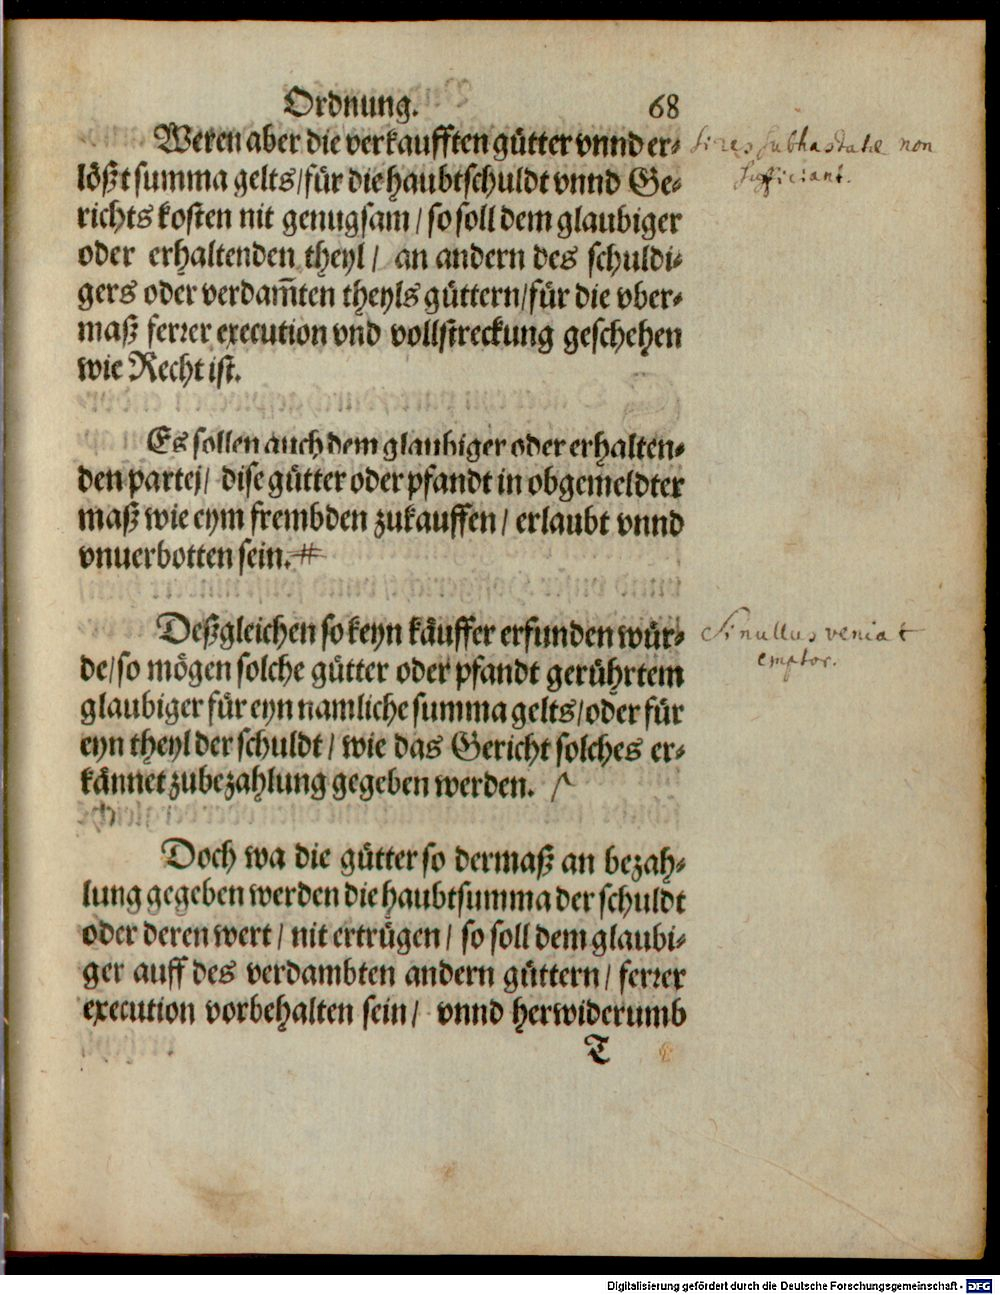 Ordnung. 68
Weren aber die verkaufften gütter vnnd er-
lößt summa gelts/ für die haubtschuldt vnnd Ge-
richts kosten nit genugsam/ so soll dem glaubiger
oder erhaltenden theyl/ an andern des schuldi-
gers oder verdam̄ten theyls güttern/ für die vber-
maß ferrer execution vnd vollstreckung geschehen
wie Recht ist.
Si res subhastatae non
sufficiant.
Es sollen auch dem glaubiger oder erhalten-
den partei/ dise gütter oder pfandt in obgemeldter
maß wie eym frembden zukauffen/ erlaubt vnnd
vnuerbotten sein. #
Deßgleichen so keyn käuffer erfunden wür-
de/ so mögen solche gütter oder pfandt gerührtem
glaubiger für eyn namliche summa gelts/ oder für
eyn theyl der schuldt/ wie das Gericht solches er-
kännet zubezahlung gegeben werden.
Si nullus veniat
emptor.
Doch wa die gütter so dermaß an bezah-
lung gegeben werden die haubtsumma der schuldt
oder deren wert/ nit ertrügen/ so soll dem glaubi-
ger auff des verdambten andern güttern/ ferrer
execution vorbehalten sein/ vnnd herwiderumb
T
Digitalisierung gefördert durch die Deutsche Forschungsgemeinschaft - DFG